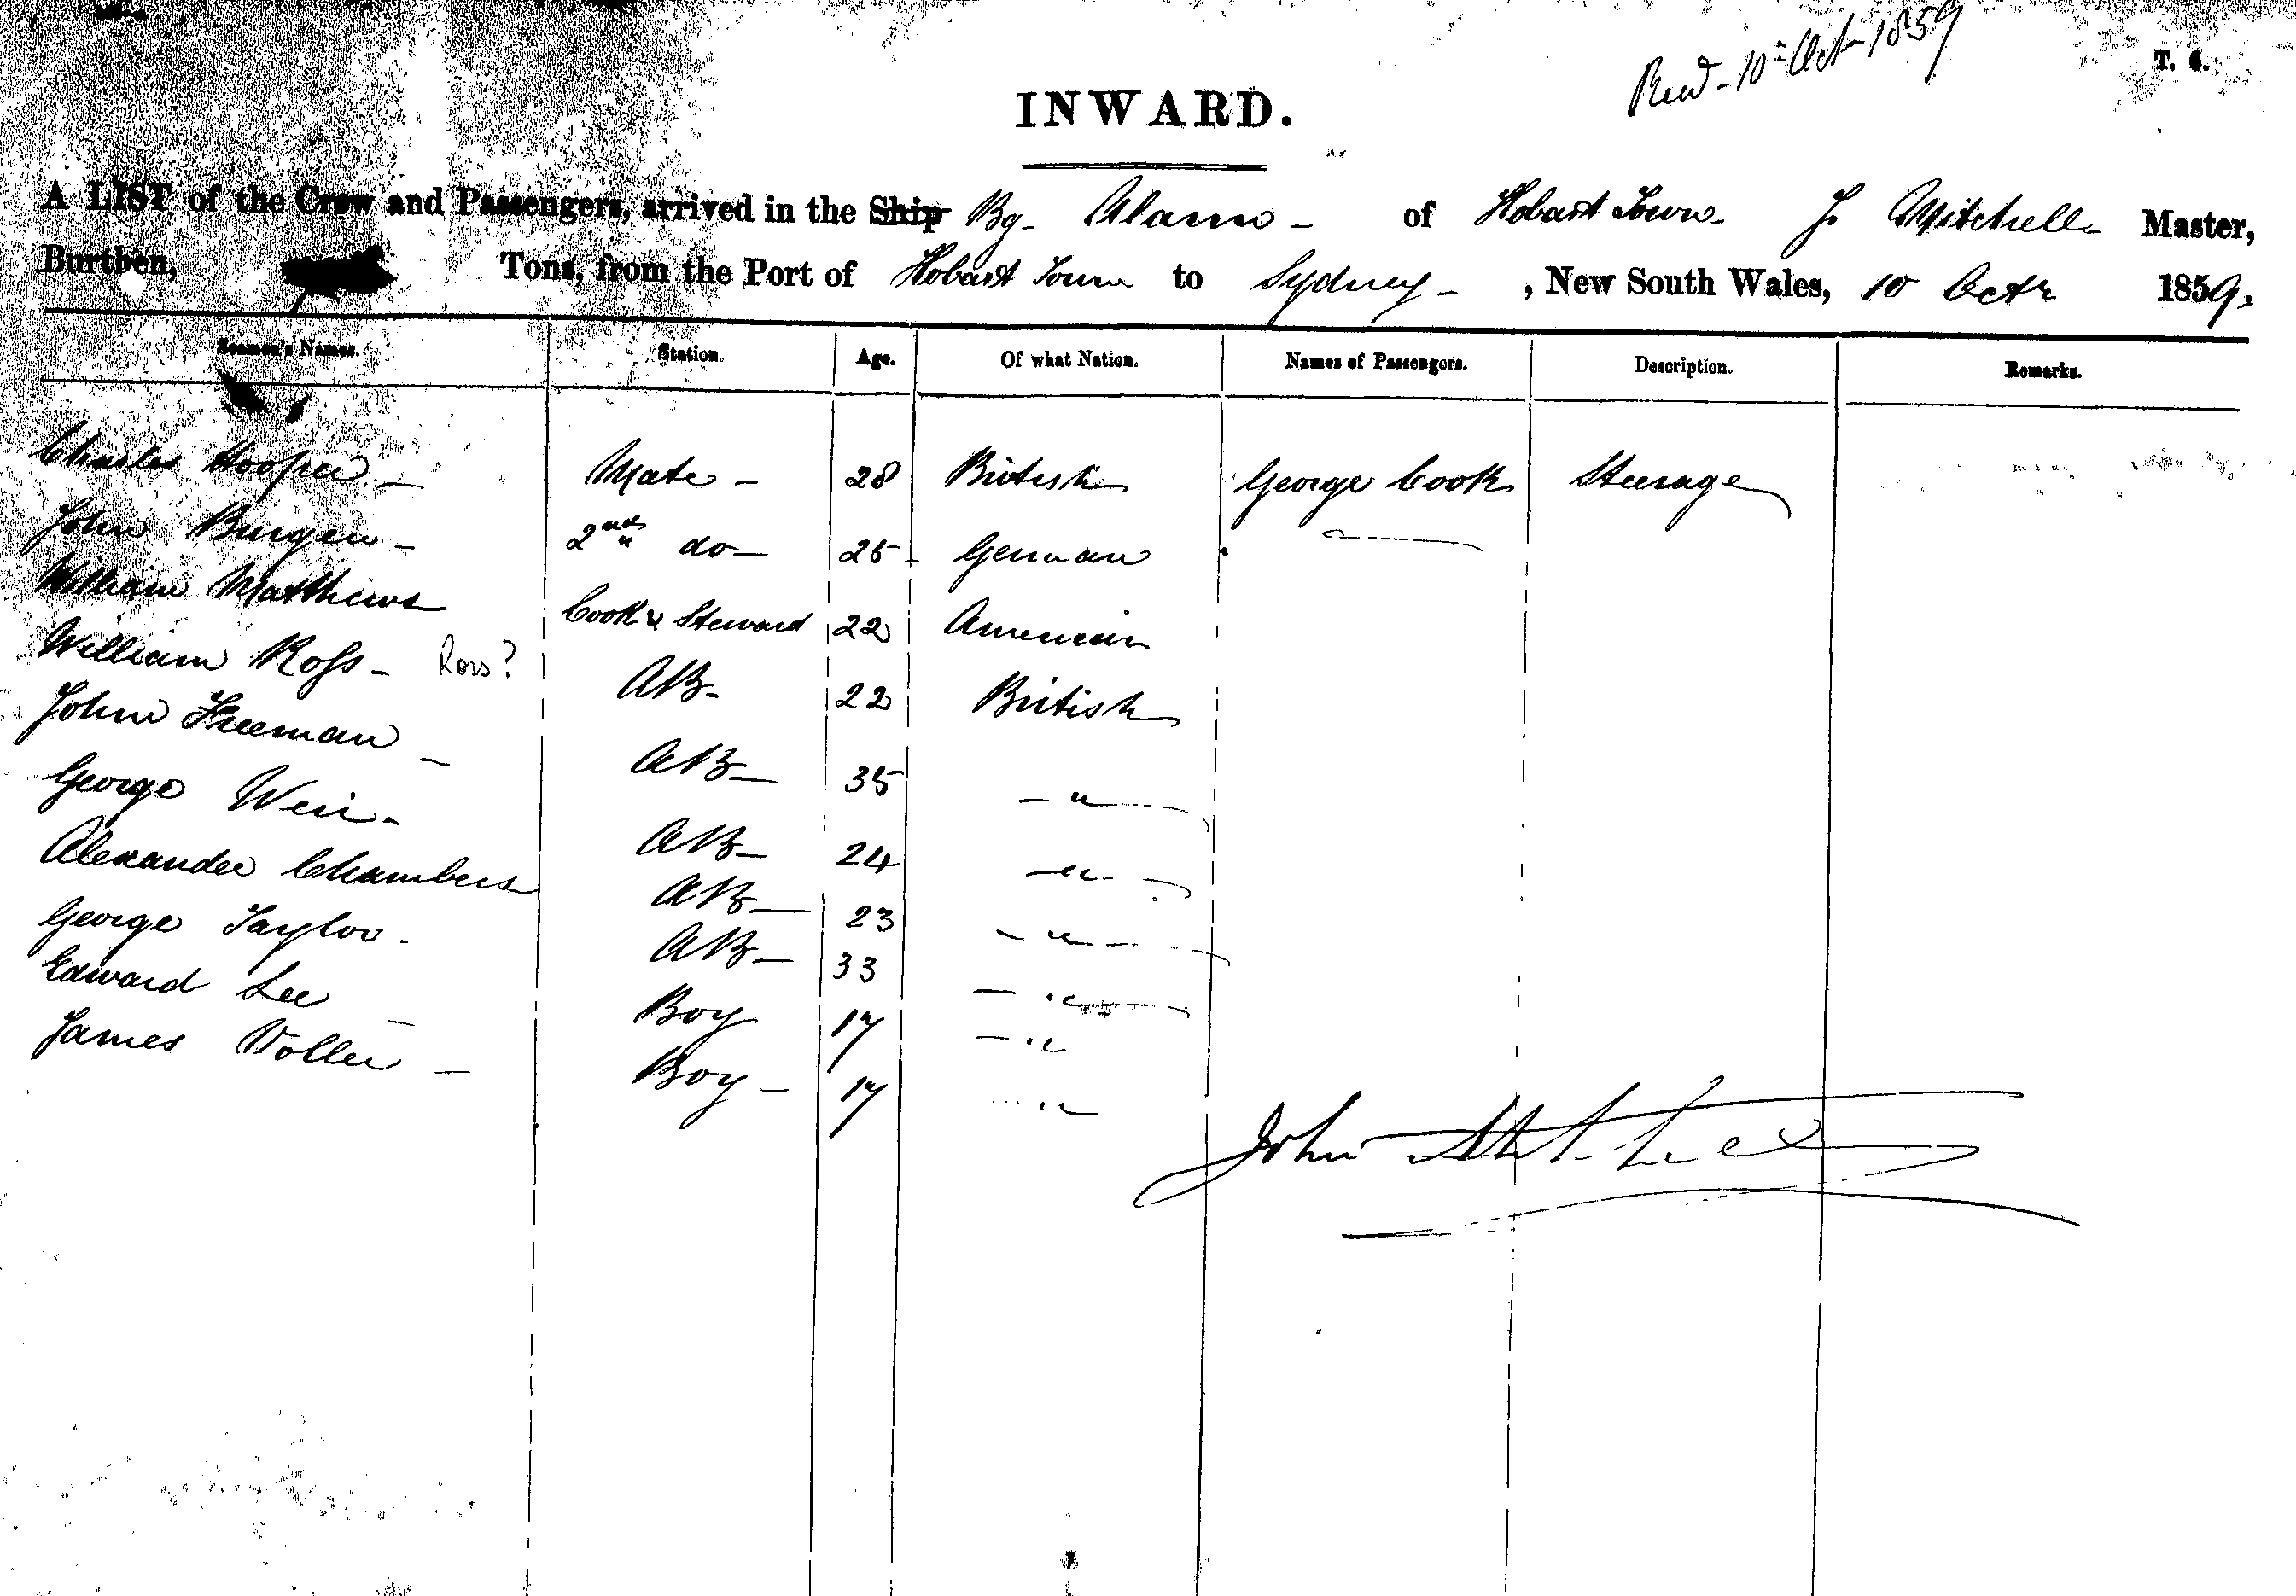 Recd - 10th Oct - 1859
T. 6.
INWARD.
A LIST of the Crew and Passengers, arrived in the Ship Bg. Alamo - of Hobart Town J. Mitchell - Master,
Burthen, Tons, from the Port of Hobart Town to Sydney - , New South Wales, 10 Octr 1859.
Seamen's Names. Station. Age. Of what Nation. Names of Passengers. Description. Remarks.
Charles Hooper - Mate - 28 British George Cook Steerage
John Burgen - 2nd do - 25 German
William Matthews Cook & Steward 22 American
William Ross - Ross? AB - 22 British
John Freeman - AB - 35 - " -
George Weir - AB - 24 - " -
Alexander Chambers AB - 23 - " -
George Taylor - AB - 33 - " -
Edward Lee - Boy 17 - "
James Voller - Boy - 17 - "
John Mitchell